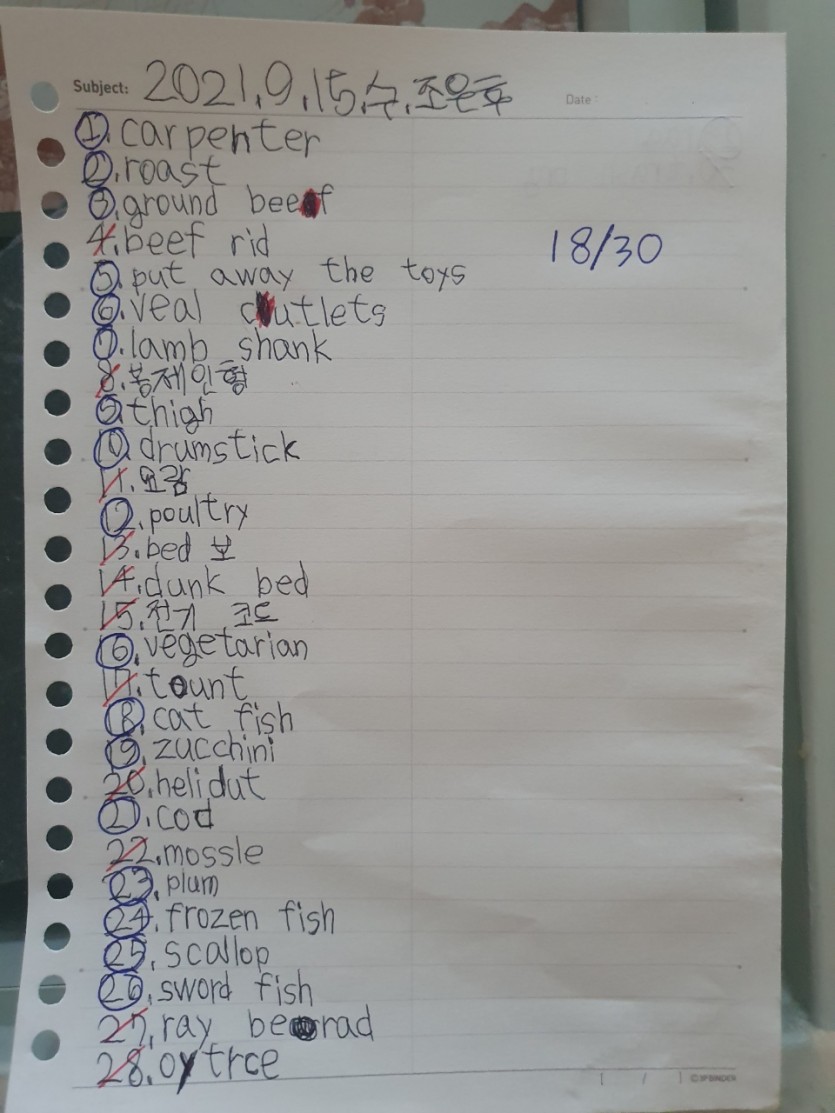 Subject: 2021.9.15.수.조은후
Date:
1.carpenter
2.roast
3.ground beef
4.beef rid
18/30
5.put away the toys
6.veal cutlets
7.lamb shank
8.봉제인형
9.thigh
10.drumstick
11.요람
12.poultry
13.bed 보
14.dunk bed
15.전기 코드
16.vegetarian
17.tount
18.cat fish
19.zucchini
20.helidut
21.cod
22.mossle
23.plum
24.frozen fish
25.scallop
26.sword fish
27.ray berad
28.oytrce